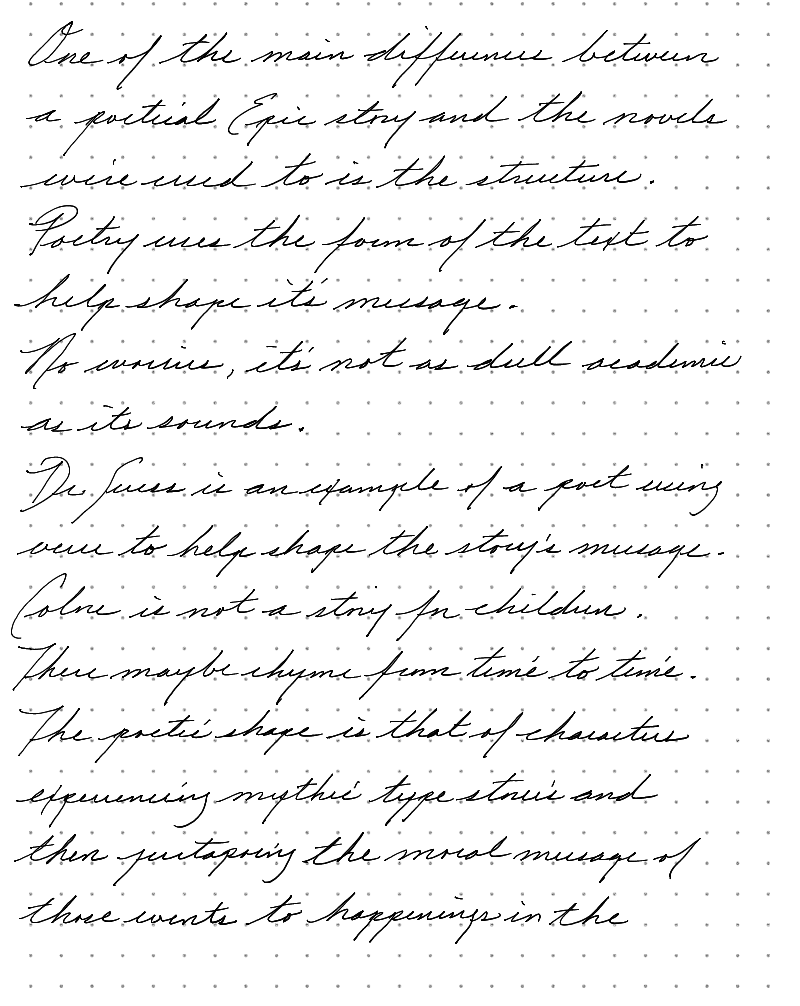 One of the main differences between
a poetical Epic story and the novels
we're used to is the structure.
Poetry uses the form of the text to
help shape it's message.
No worries, it's not as dull academic
as its sounds.
Dr Suess is an example of a poet using
verse to help shape the story's message.
is not a story for children.
There maybe rhyme from time to time.
The poetic shape is that of characters
experiencing mythic type stories and
then juxtaposing the moral message of
those events to happenings in the